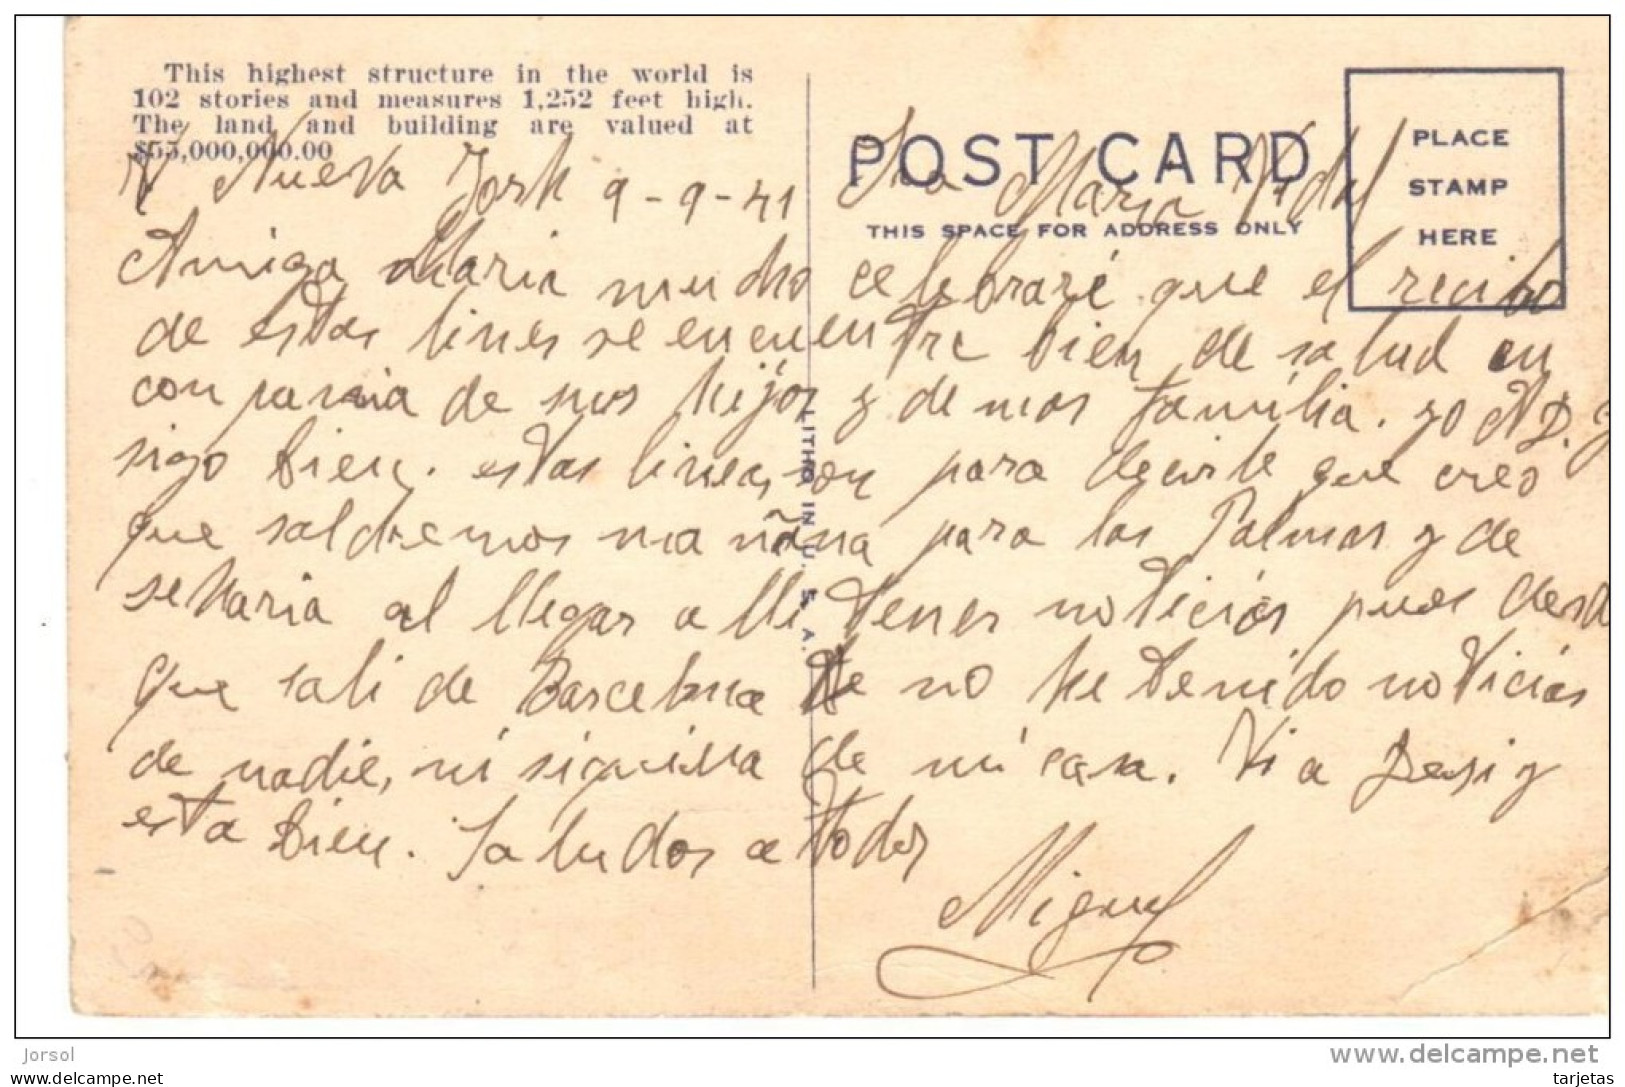 This highest structure in the world is
102 stories and measures 1,252 feet high.
The land and building are valued at
$55,000,000.00
POST CARD
THIS SPACE FOR ADDRESS ONLY
PLACE
STAMP
HERE
LITHO IN U. S. A.
Nueva York 9-9-41 Sra Maria Vidal
Amiga Maria mucho celebraré que el recibo
de estas lines se encuentre bien de salud en
conpania de sus hijos y demas família. yo A D. g
sigo bien. estas lines, son para decirle que creo
que saldremos mañana para las Palmas y de
searia al llegar alli tener noticias pues desd
que sali de Barcelona no he tenido noticias
de nadie, ni siquiera de mi casa. Via
esta bien. Saludos a todos
Miguel
Jorsol
www.delcampe.net
www.delcampe.net
tarjetas